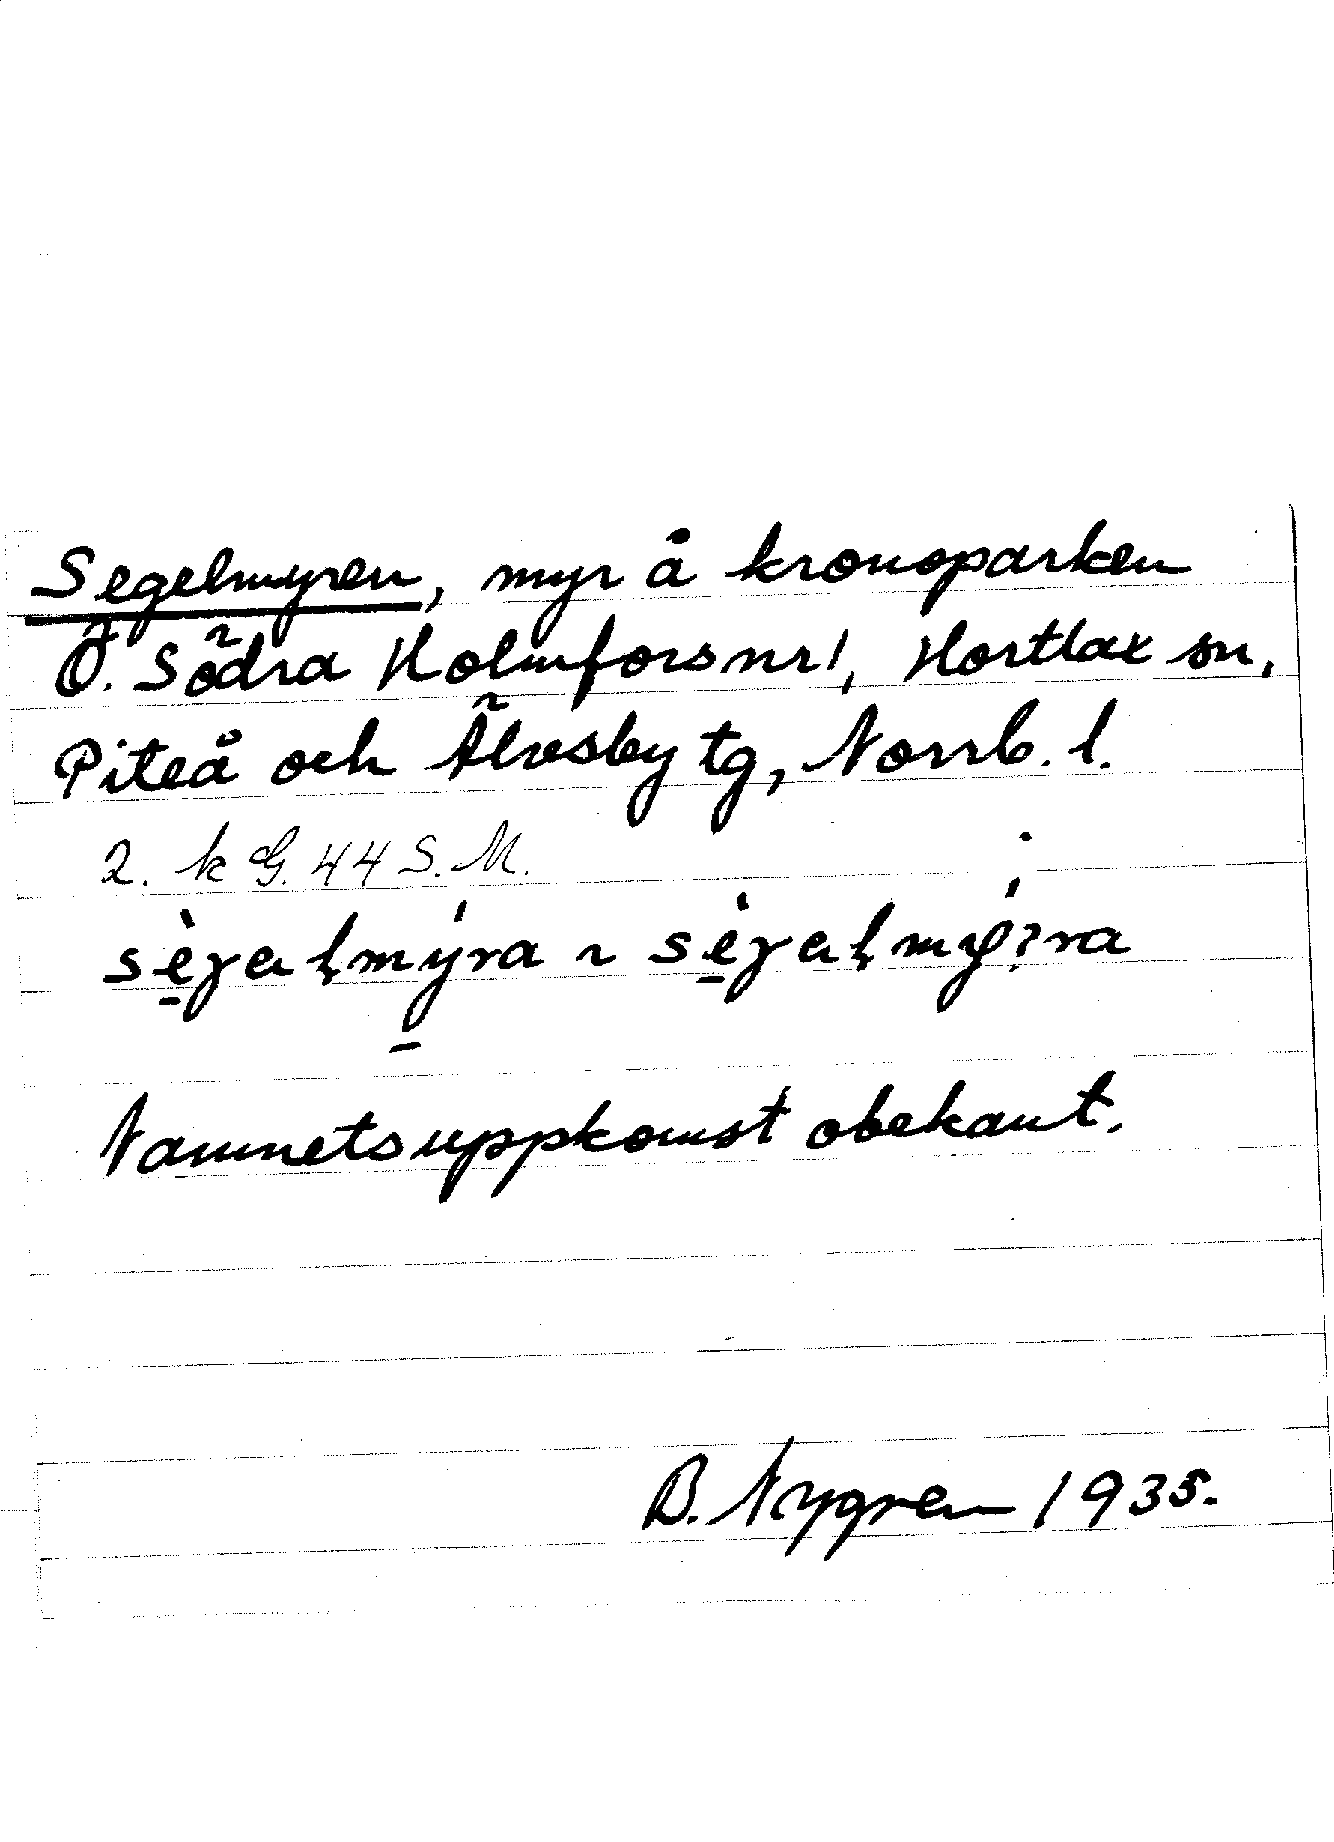 Segelmyren, myr å kronoparken
Ö. Södra Holmfors nr 1, Hortlax sn,
Piteå och Älvsby tg, Norrb. l.
2. k G. 44 S. M.
Namnets uppkomst obekant.
B. Nygren 1935.